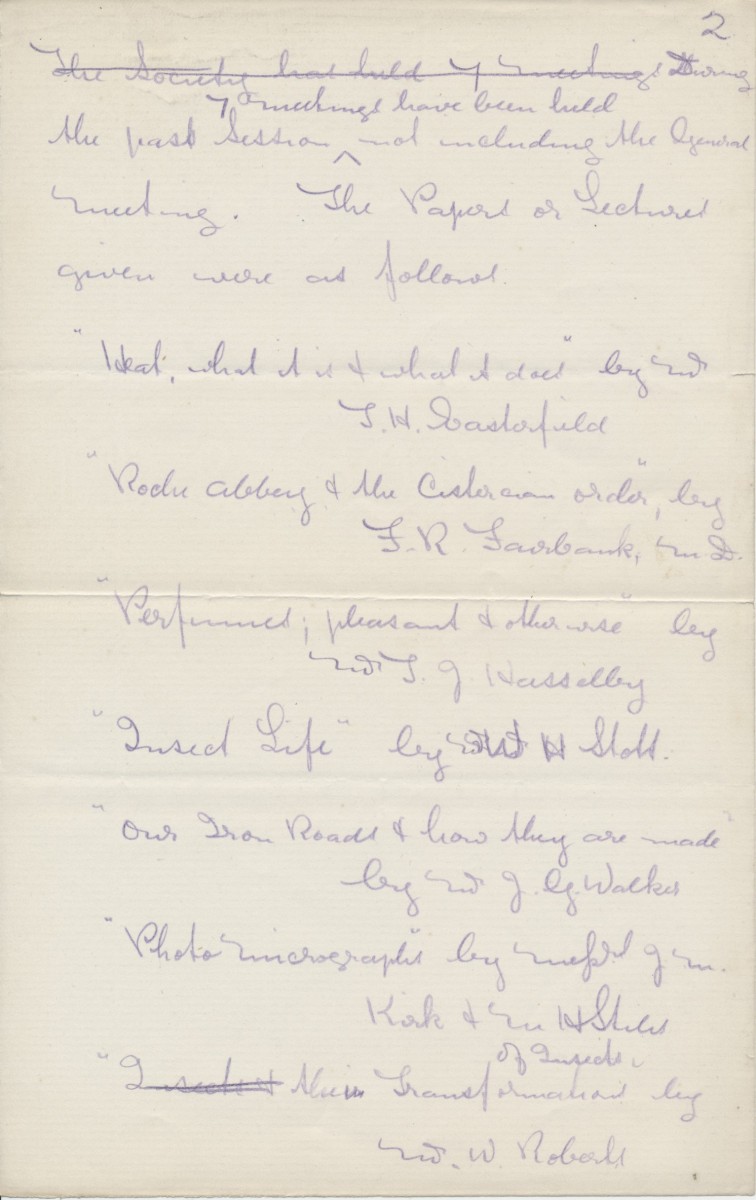 2
The Society has held 7 meetings During
7 meetings have been held
the past Session ^ not including the General
Meeting. The Papers or Lectures
given were as follows.
"Heat, what it is & what it does" by Mr
T. H. Easterfield
"Roche Abbey & the Cistercian order", by
F. R. Fairbank, M.D.
"Perfumes; pleasant & otherwise" by
Mr T. J. Hasselby
"Insect Life" by H Stott.
"Our Iron Roads & how they are made"
by Mr J. G. Walker
"Photo Micrographs" by Messrs J M.
Kirk & M H Stiles
of Insects.
"Insects & their Transformations by
Mr. W. Roberts